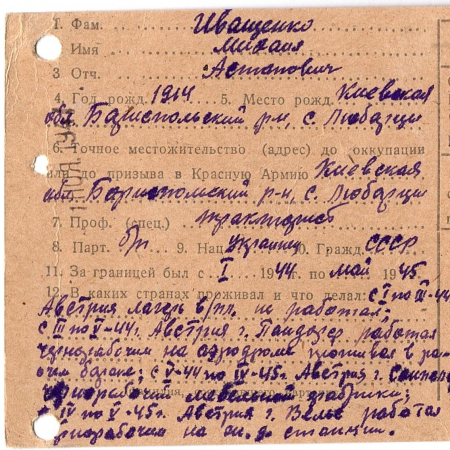 1. Фам. Иващенко
2. Имя Михаил
3 Отч. Астапович
4. Год рожд. 1914 5. Место рожд. Киевская
обл. Бариспольский р-н, с. Любарцы
6. Точное местожительство (адрес) до оккупации
или до призыва в Красную Армию Киевская
обл. Бориспольский р-н, с. Любарцы
7. Проф. (спец.) тракторист
8. Парт. б/п 9. Нац. украинц 10. Гражд. СССР
11. За границей был с I 1944 по май 1945
12. В каких странах проживал и что делал: с I по III-44
Австрия лагерь в/пл. не работал;
с III по V-44г. Австрия г. работал
чернорабочим на аэродроме проживал в ра-
бочем бараке; с V-44 по IV-45г. Австрия г.
чернорабочим мебельной фабрики;
с IV по V-45г. Австрия г. Вельс работал
чернорабочим на ж. д. станции.